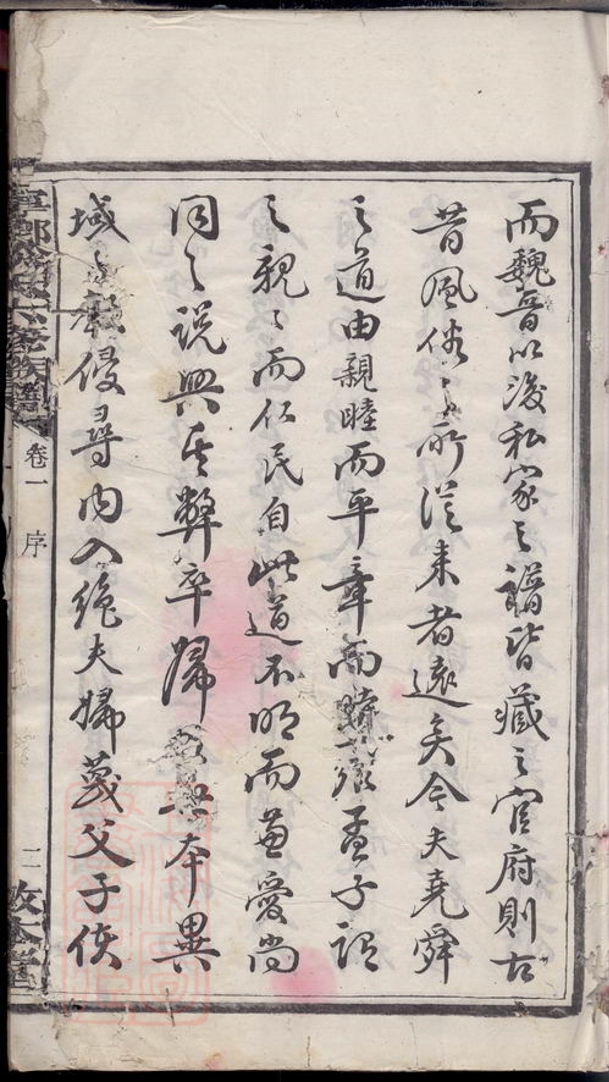 而魏晉以後私家之譜皆藏之官府則古
昔風俗之所從來者遠矣今夫堯舜
之道由親睦而平章而時雍孟子謂
之親親而仁民自此道不明而兼愛尚
同之說興其弊卒歸 本異
域之教侵尋內入绝夫婦蔑父子使
卷一 序
二
敦本堂